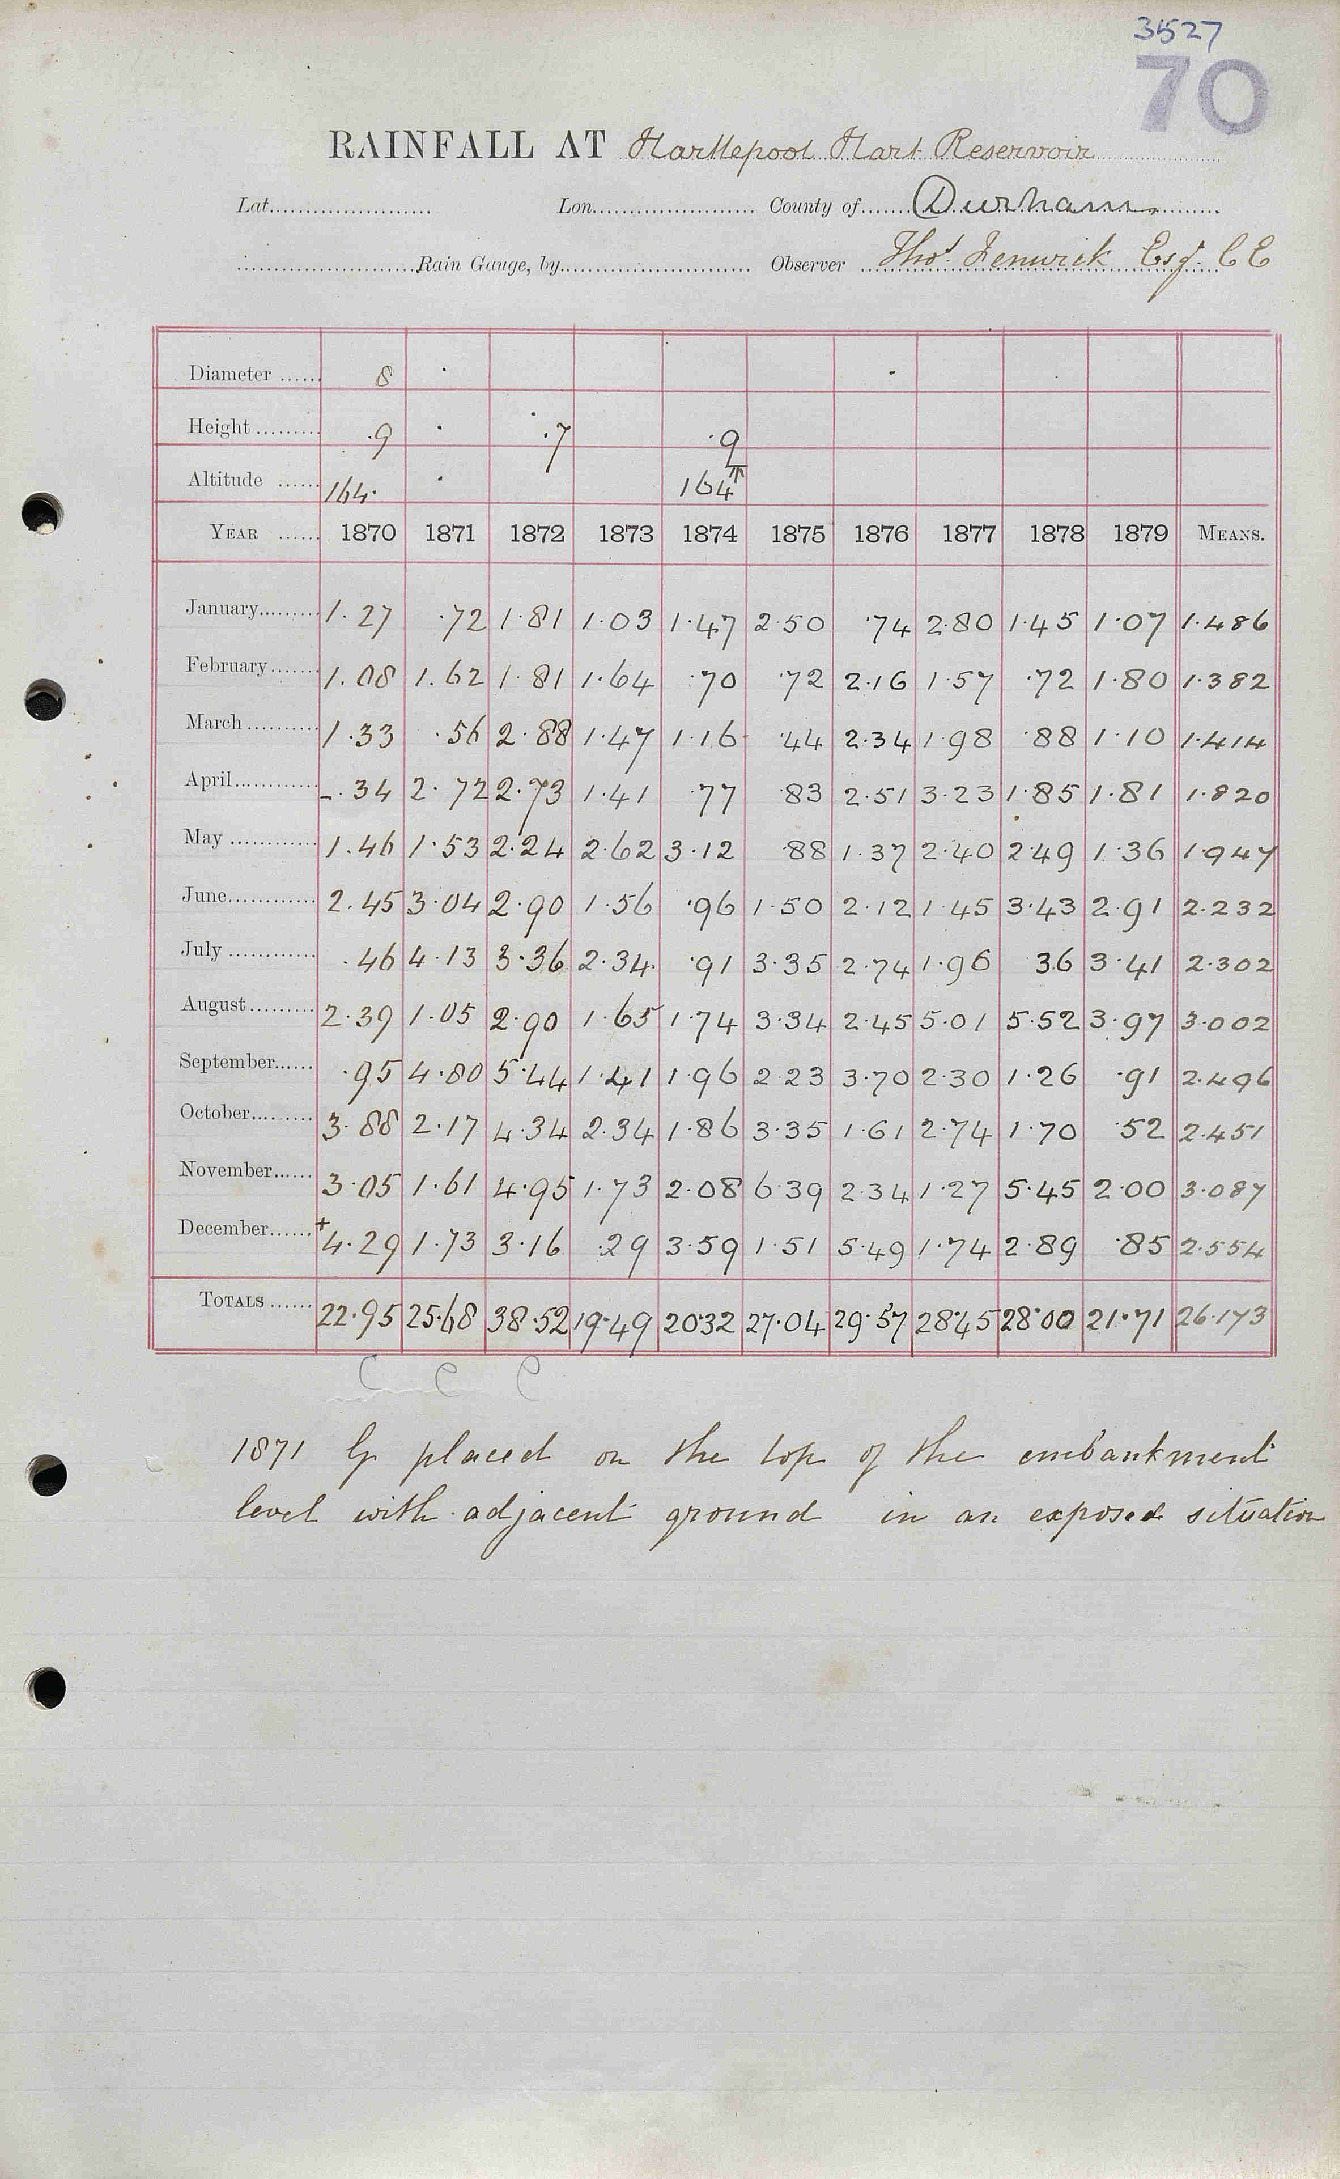 3527
70
RAINFALL AT Hartlepool Hart Reservoir
Lat. Lon. County of Durham
Rain Gauge, by Observer Thos Fenwick Esqr C E
Diameter 8
Height .9 .7 .9
Altitude 164. 164
YEAR 1870 1871 1872 1873 1874 1875 1876 1877 1878 1879 MEANS.
January 1.27 .72 1.81 1.03 1.47 2.50 .74 2.80 1.45 1.07 1.486
February 1.08 1.62 1.81 1.64 .70 .72 2.16 1.57 .72 1.80 1.382
March 1.33 .56 2.88 1.47 1.16 .44 2.34 1.98 .88 1.10 1.414
April -.34 2.72 2.73 1.41 .77 .83 2.51 3.23 1.85 1.81 1.820
May 1.46 1.53 2.24 2.62 3.12 .88 1.37 2.40 2.49 1.36 1.947
June 2.45 3.04 2.90 1.56 .96 1.50 2.12 1.45 3.43 2.91 2.232
July .46 4.13 3.36 2.34 .91 3.35 2.74 1.96 36 3.41 2.302
August 2.39 1.05 2.90 1.65 1.74 3.34 2.45 5.01 5.52 3.97 3.002
September .95 4.80 5.44 1.41 1.96 2.23 3.70 2.30 1.26 .91 2.496
October 3.88 2.17 4.34 2.34 1.86 3.35 1.61 2.74 1.70 .52 2.451
November 3.05 1.61 4.95 1.73 2.08 6.39 2.34 1.27 5.45 2.00 3.087
December +4.29 1.73 3.16 .29 3.59 1.51 5.49 1.74 2.89 .85 2.554
TOTALS 22.95 25.68 38.52 19.49 20.32 27.04 29.57 28.45 28.00 21.71 26.173
C C C
1871 G placed on the top of the embankment
level with adjacent ground in an exposed situation